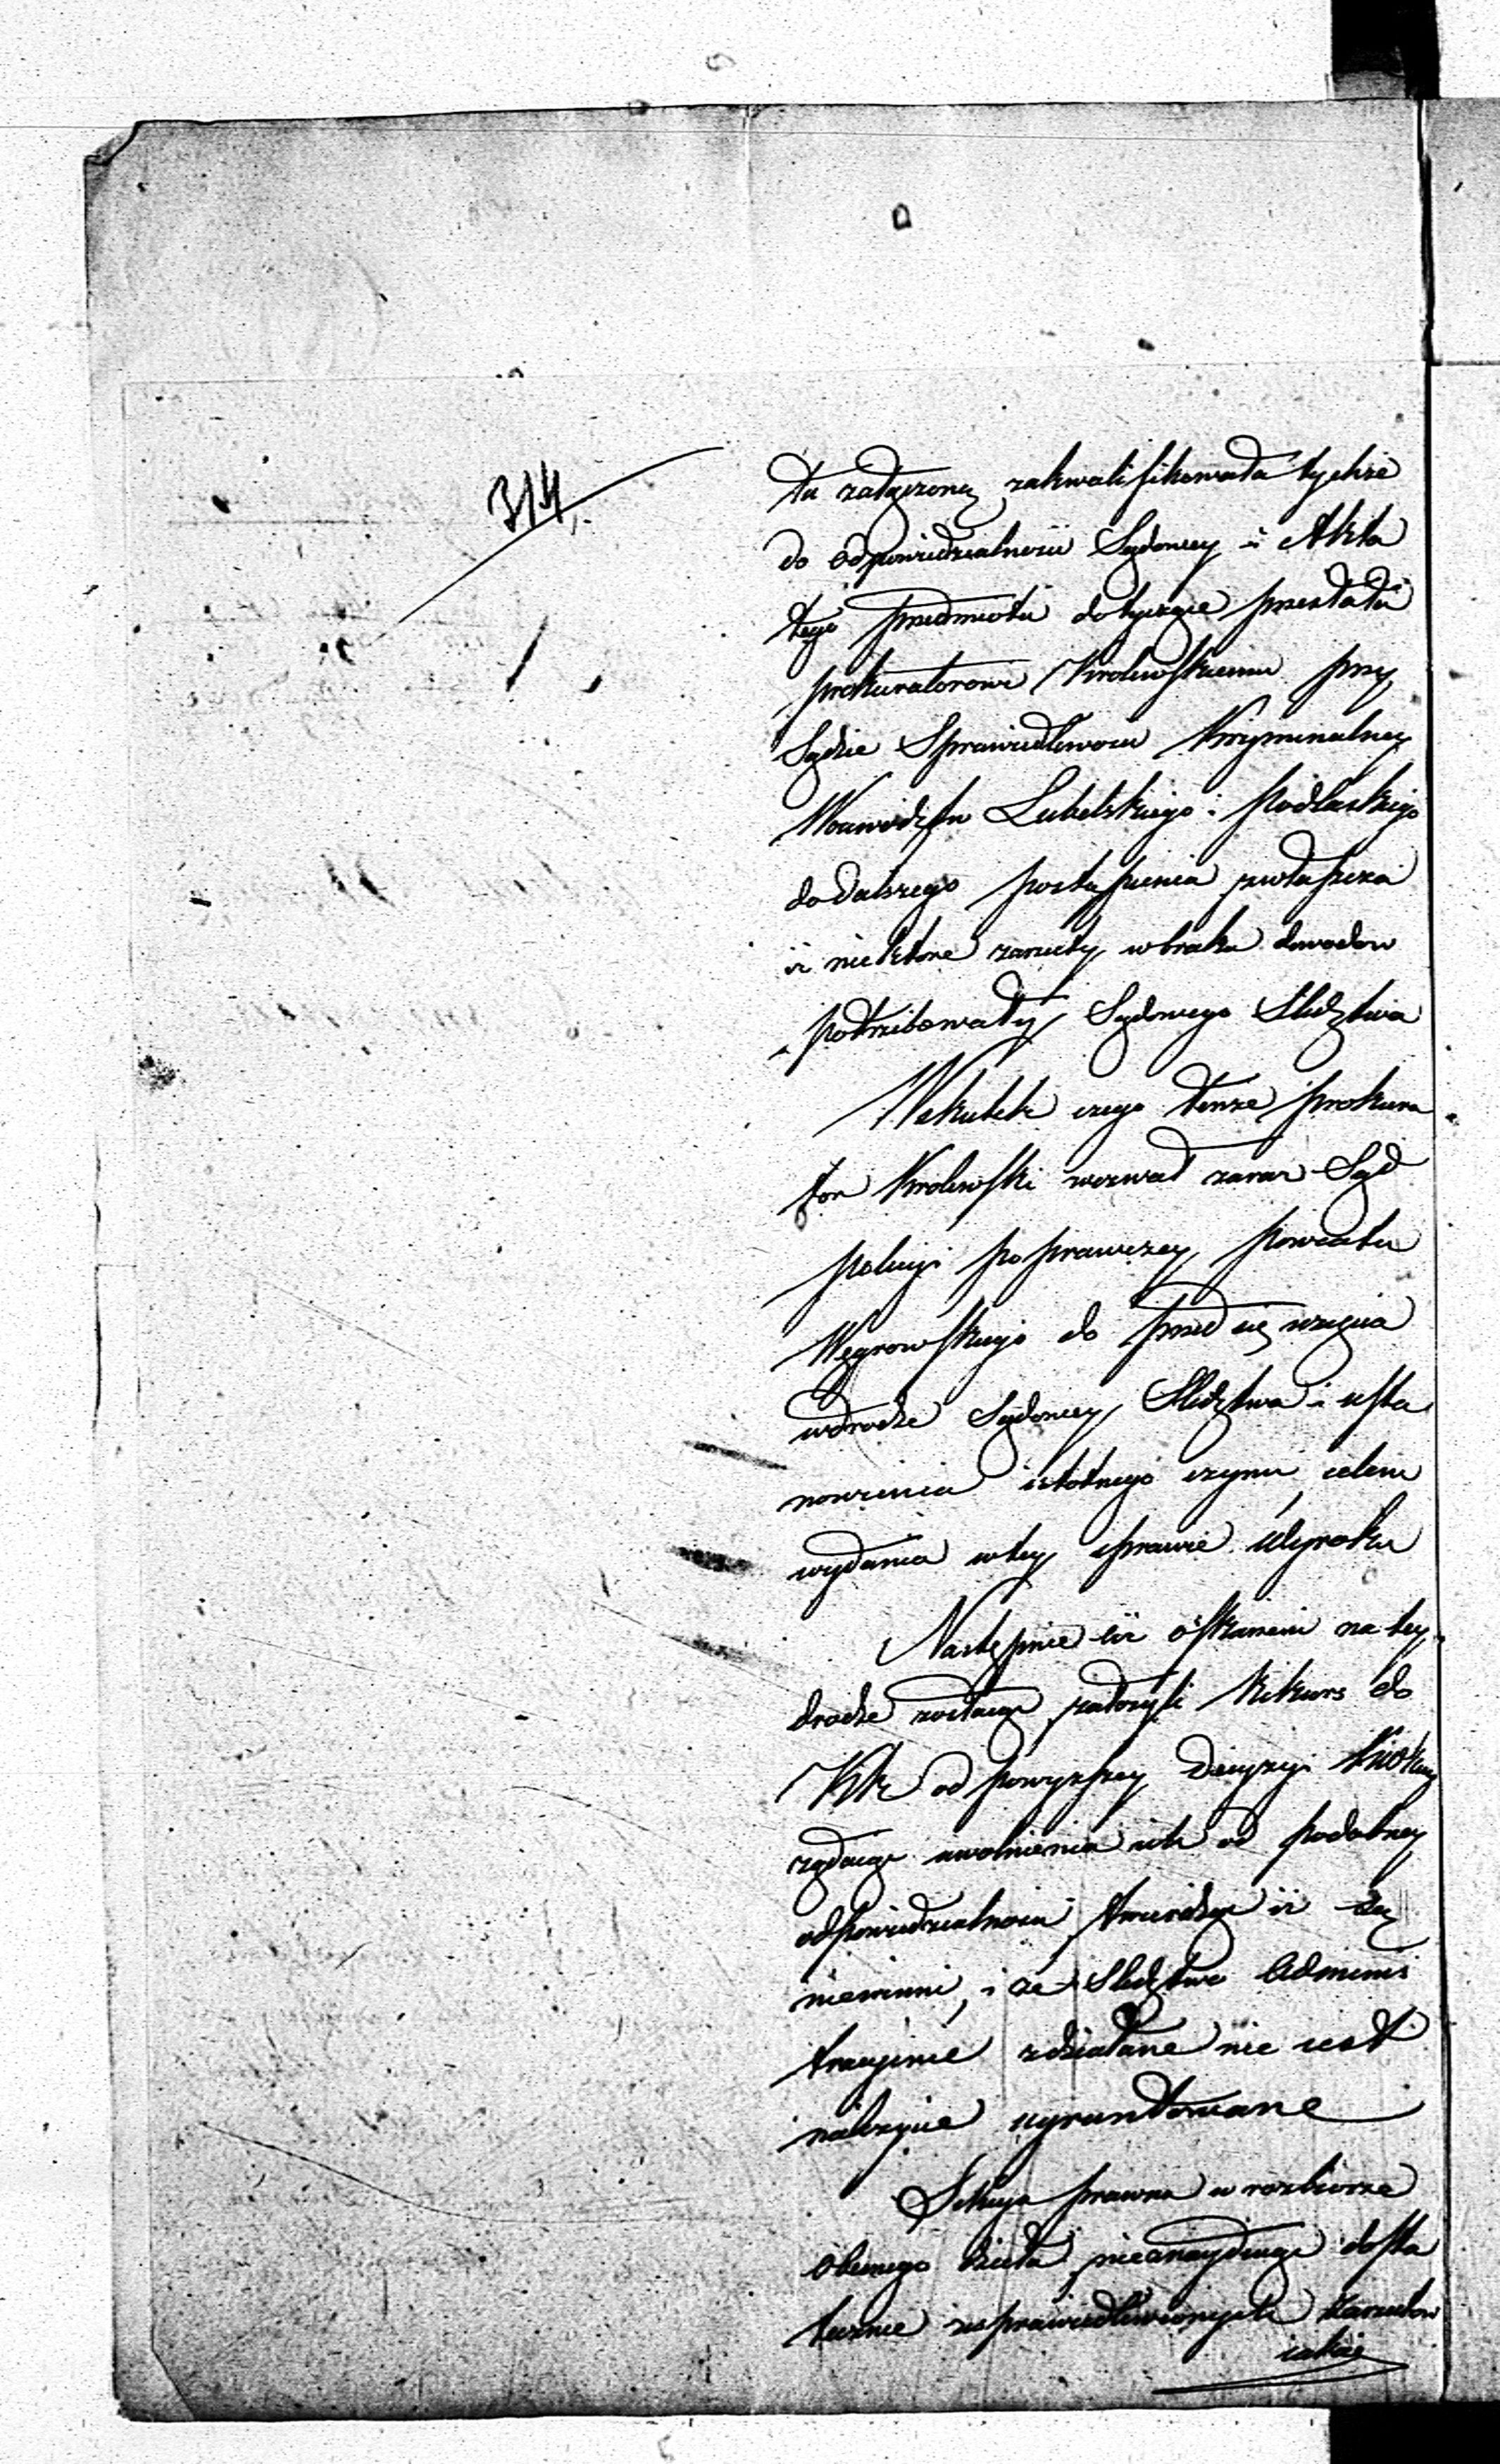 314
tu załączoną zakwalifikowała tychże
do odpowiedzialności Sądowey i Akta
tego przedmiotu dotyczące przesłała
prokuratorowi Krolewskiemu przy
Sądzie Sprawiedliwości Kryminalney
Woiewodztw Lubelskiego i Podlaskiego
do dalszego postąpienia zwłaszcza
iż niektóre zarzuty w braku dowodow
potrzebowały Sądowego Sledztwa
Wskutek czego tenże prokura
tor Krolewski wezwał zaraz Sąd
policyi poprawczey powiatu
Węgrowskiego do przed się wzięcia
w drodze Sądowey Sledztwa i usta
nowienia istotnego czynu, celem
wydania w tey sprawie Wyroku
Następnie ciż oskarżeni na tey
drodze zostaiąc założyli Rekurs do
od powyższey Decyzyi
żądaiąc uwolnienia ich od podobney
odpowiedzialności twierdząc iż są
niewinni, i że Sledztwo Adminis
tracyinie zdziałane nie iest
należycie ugruntowane
Sekcya prawna w rozbiorze
obecnego dzieła nieznayduiąc dosta
tecznie usprawiedliwionych Zarzutow
iakie